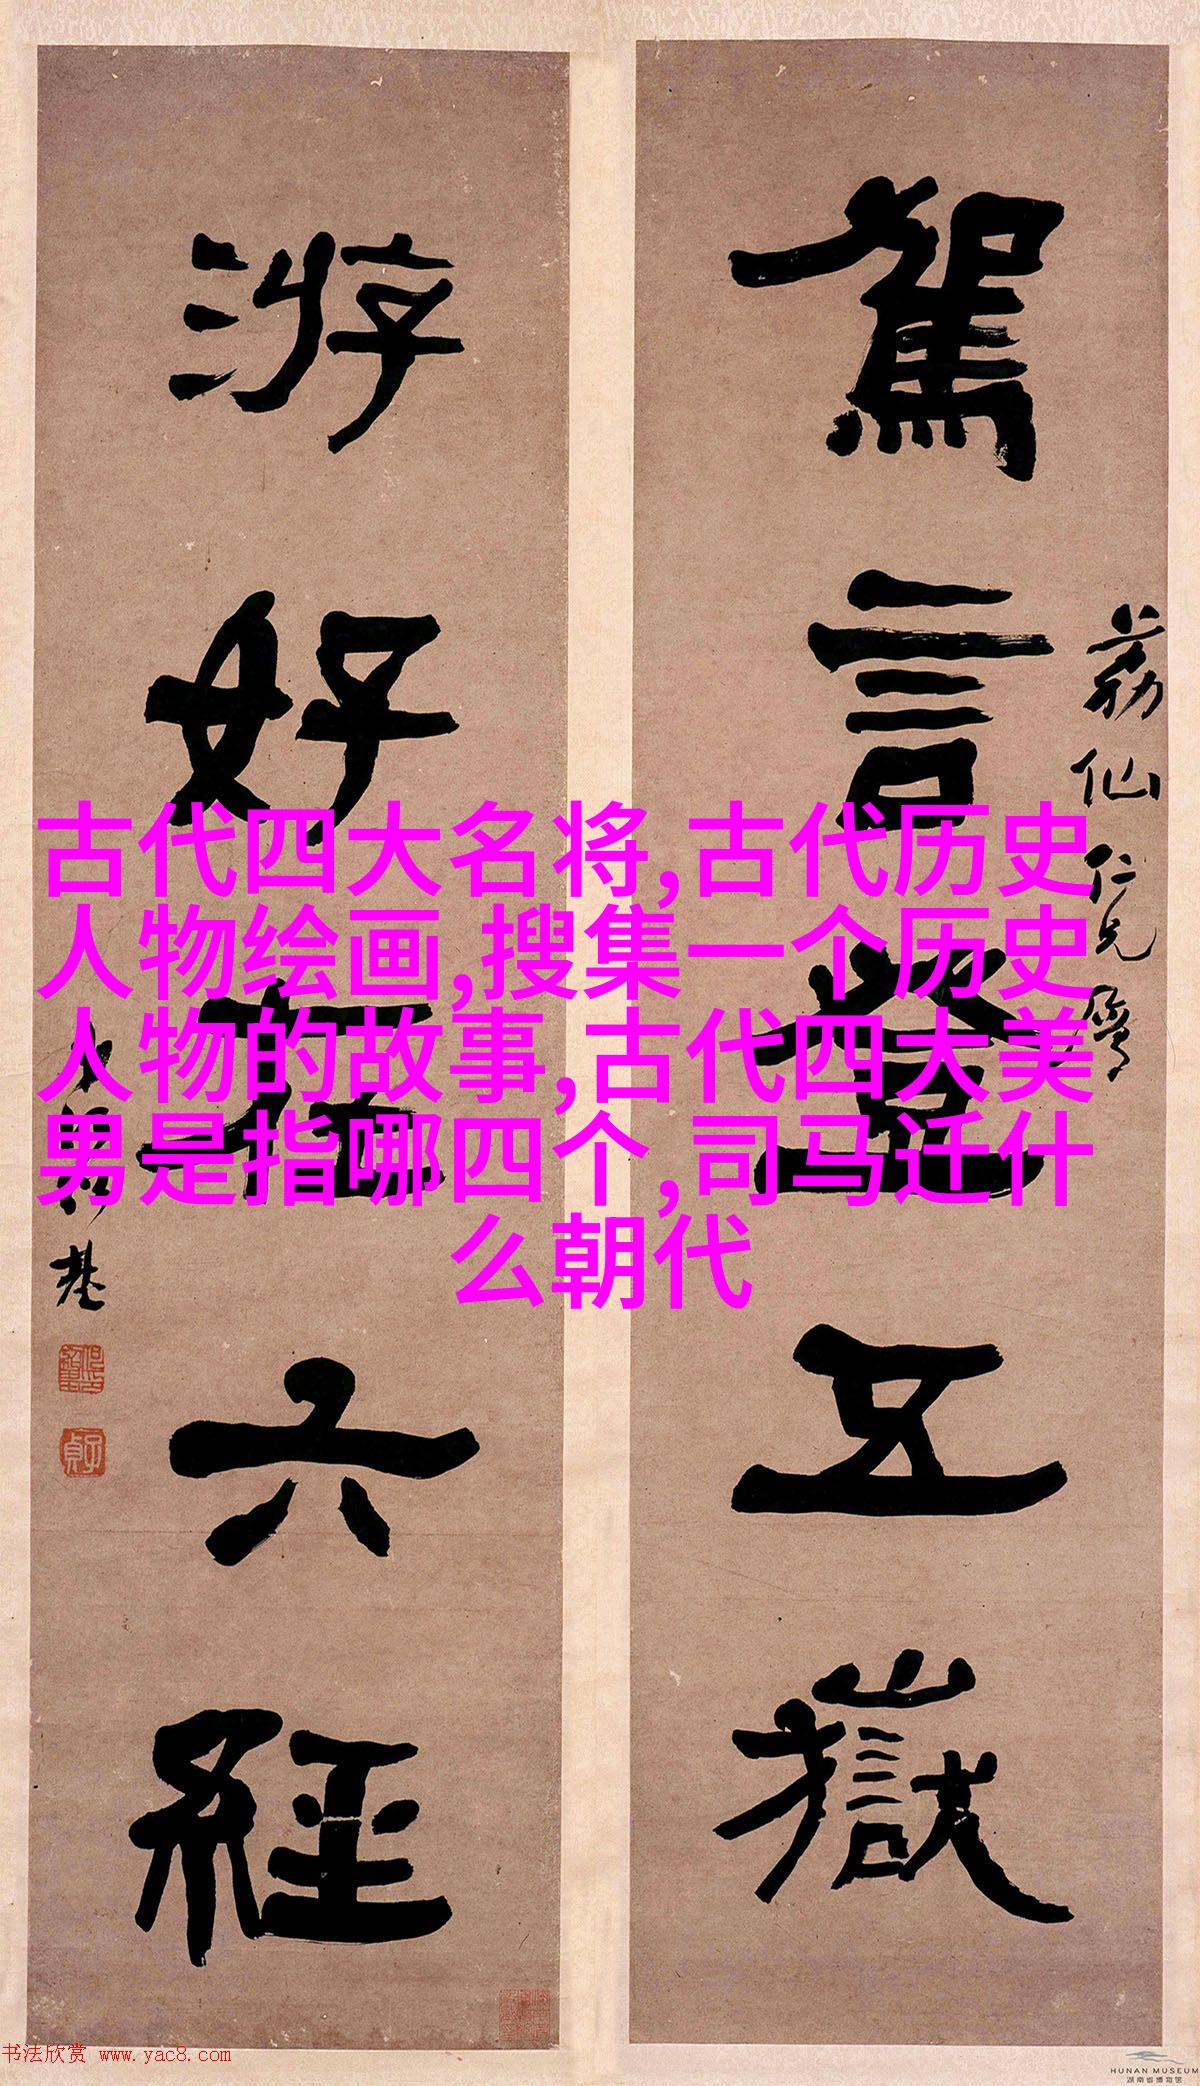 駕言登五嶽
荔仙仁兄屬
游好在六經
何紹基
子貞
古代四大名将,古代历史
人物绘画,搜集一个历史
人物的故事,古代四大美
男是指哪四个,司马迁什
么朝代
书法欣赏 www.yac8.com
HUNAN MUSEUM
湖南省博物馆